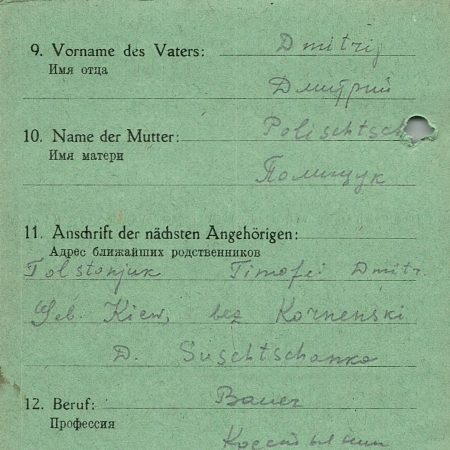 9. Vorname des Vaters: Dmitrij
Имя отца Дмитрий
10. Name der Mutter: Polischtsch
Имя матери Полищук
11. Anschrift der nächsten Angehörigen:
Адрес ближайших родственников
Tolstonjuk Timofei Dmitr.
Geb. Kiew, bez Kornenski
D. Suschtschanka
12. Beruf: Bauer
Профессия